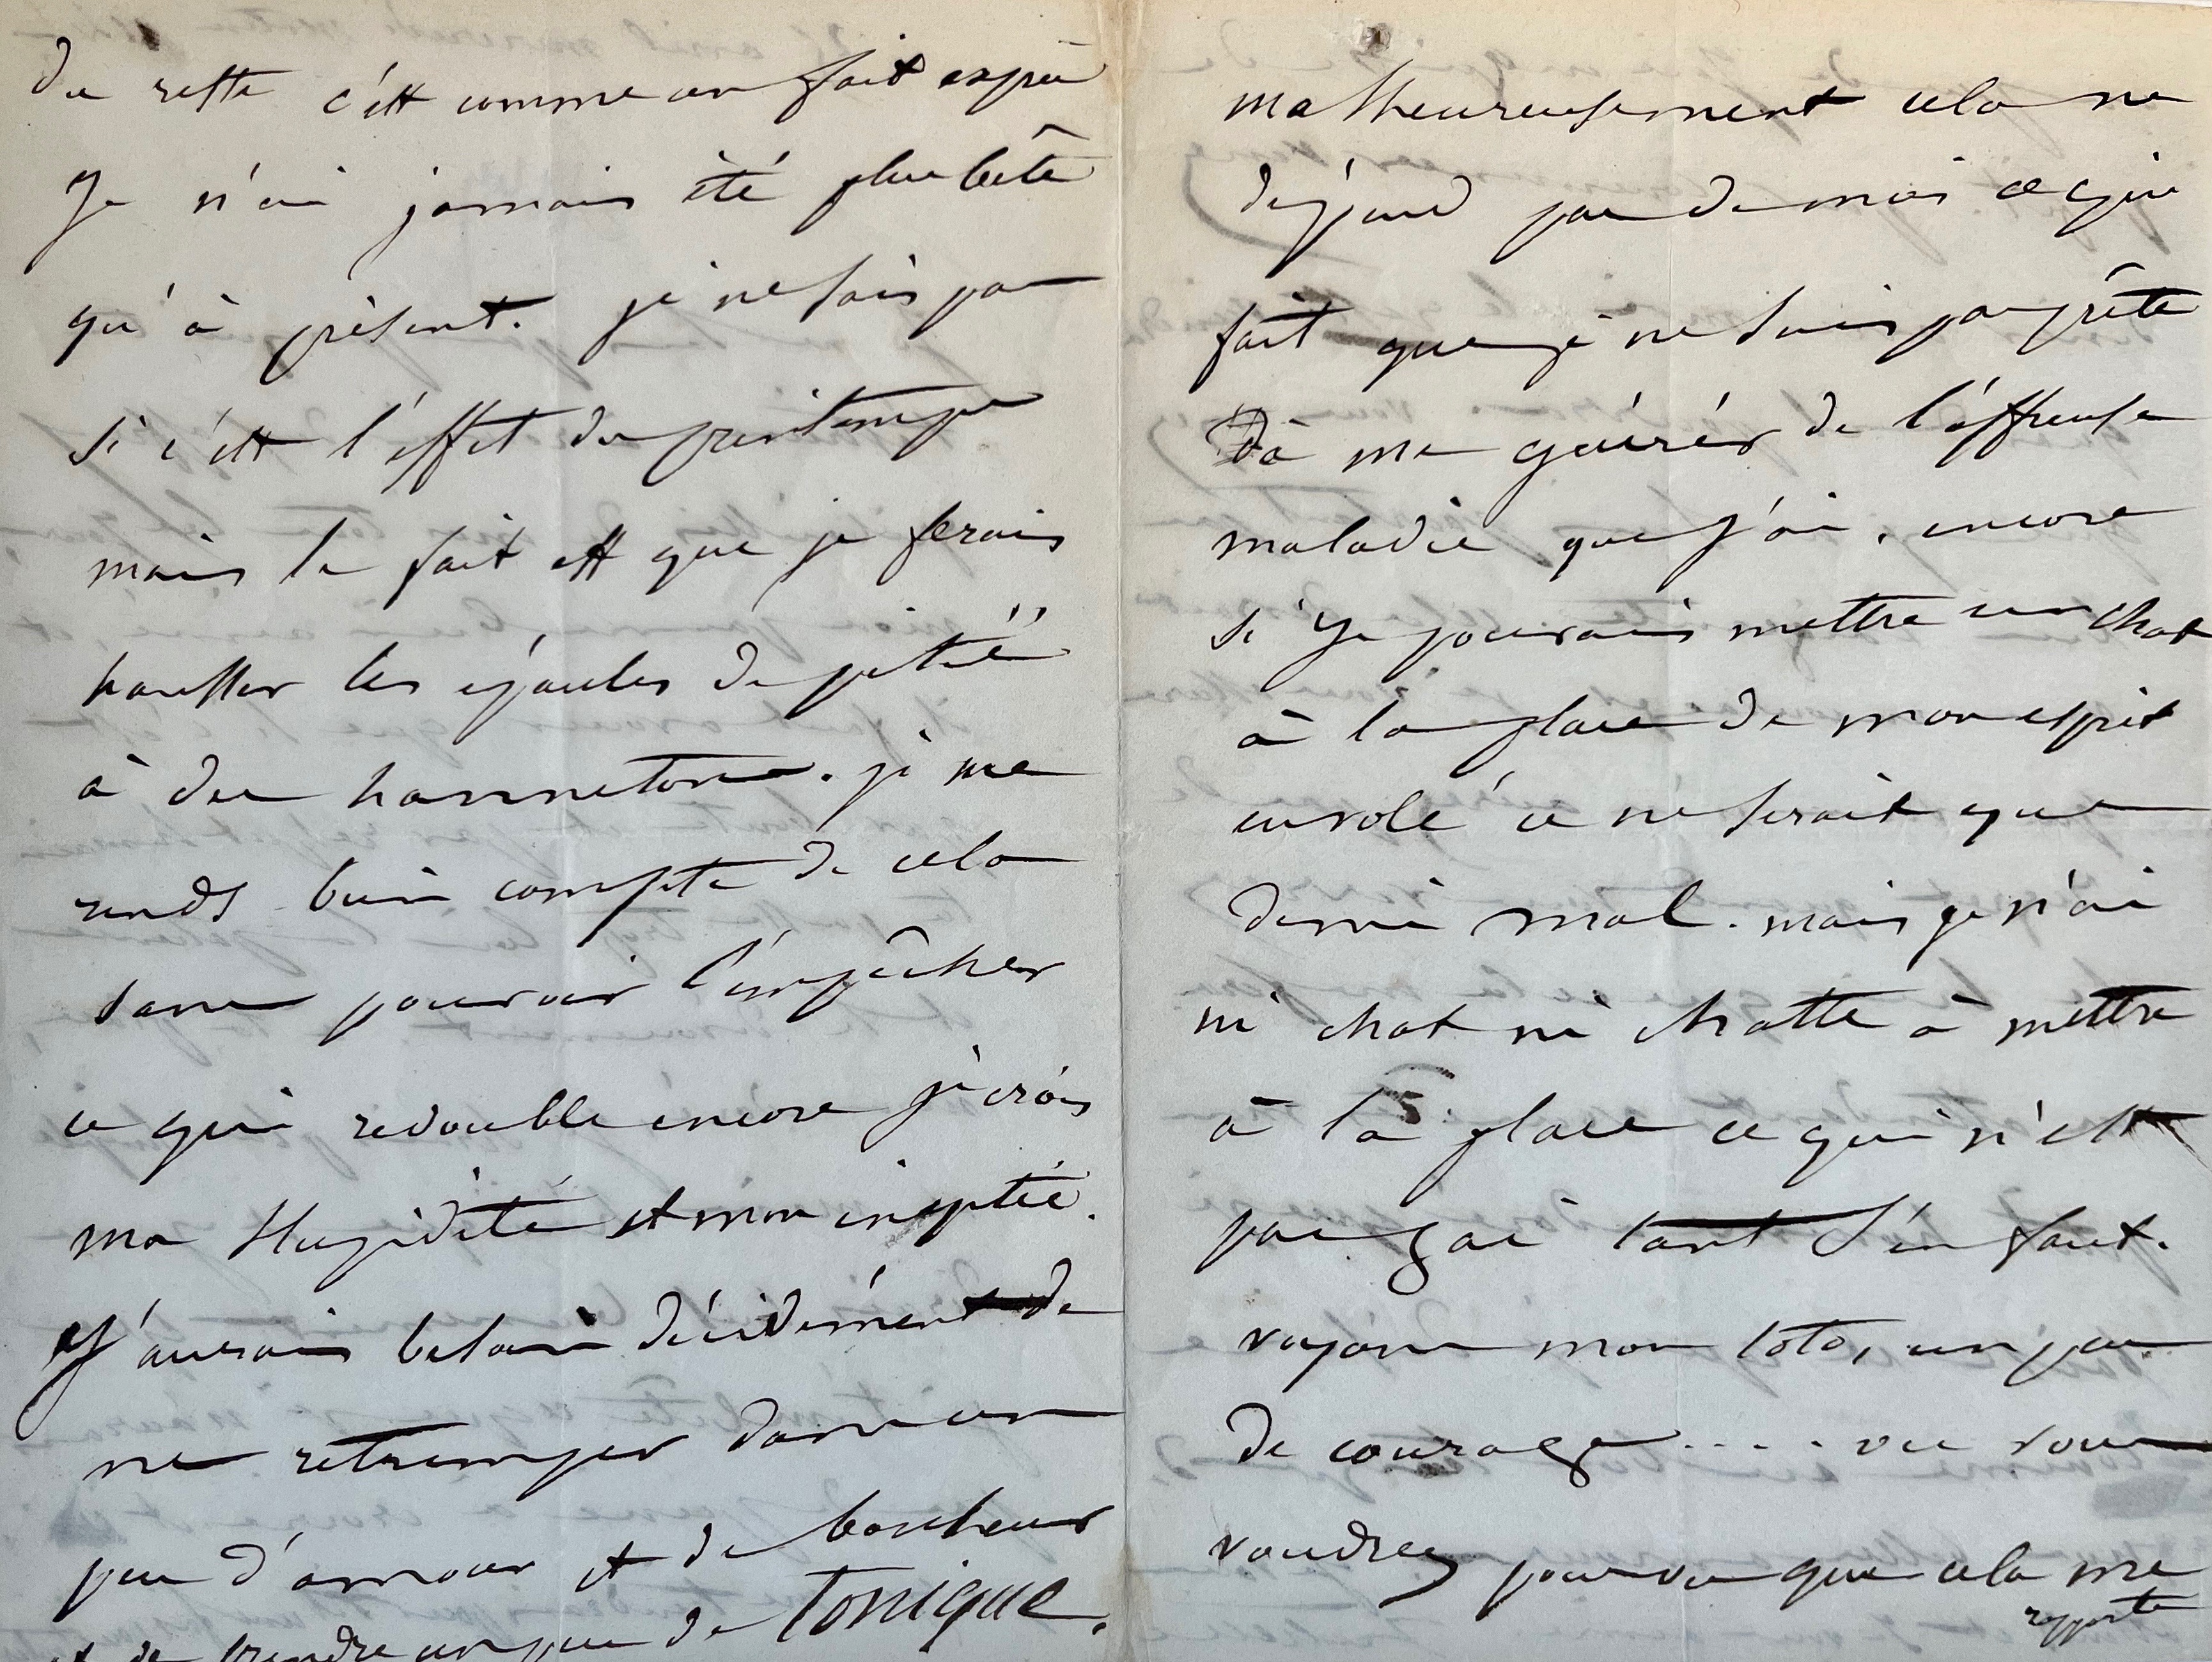 du reste c'est comme un fait exprès
Je n'ai jamais été plus bête
qu'à présent. je ne sais pas
si c'est l'effet du printemps
mais le fait est que je ferais
hausser les épaules de pitié
à des hannetons. je me
rends bien compte de cela
sans pouvoir l'empêcher
ce qui redouble encore je crois
ma stupidité et mon ineptie.
J'aurais besoin décidément de
me retremper dans un
peu d'amour et de bonheur
et de prendre un peu de tonique.
malheureusement cela ne
dépend pas de moi ce qui
fait que je ne suis pas prête
à me guérir de l'affreuse
maladie que j'ai. encore
si je pouvais mettre un chat
à la place de mon esprit
envolé ce ne serait que
demi mal. mais je n'ai
ni chat ni chatte à mettre
à la place ce qui n'est
pas gai tant s'en faut.
voyons mon toto, un peu
de courage.... où vous
voudrez pourvu que cela me
rapporte